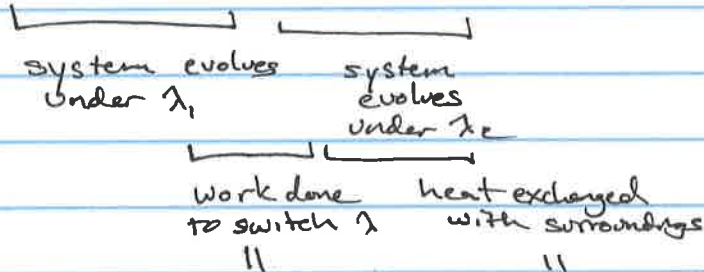 system evolves
under λ₁
system
evolves
under λ₂
work done
to switch λ
heat exchanged
with surroundings
||
||